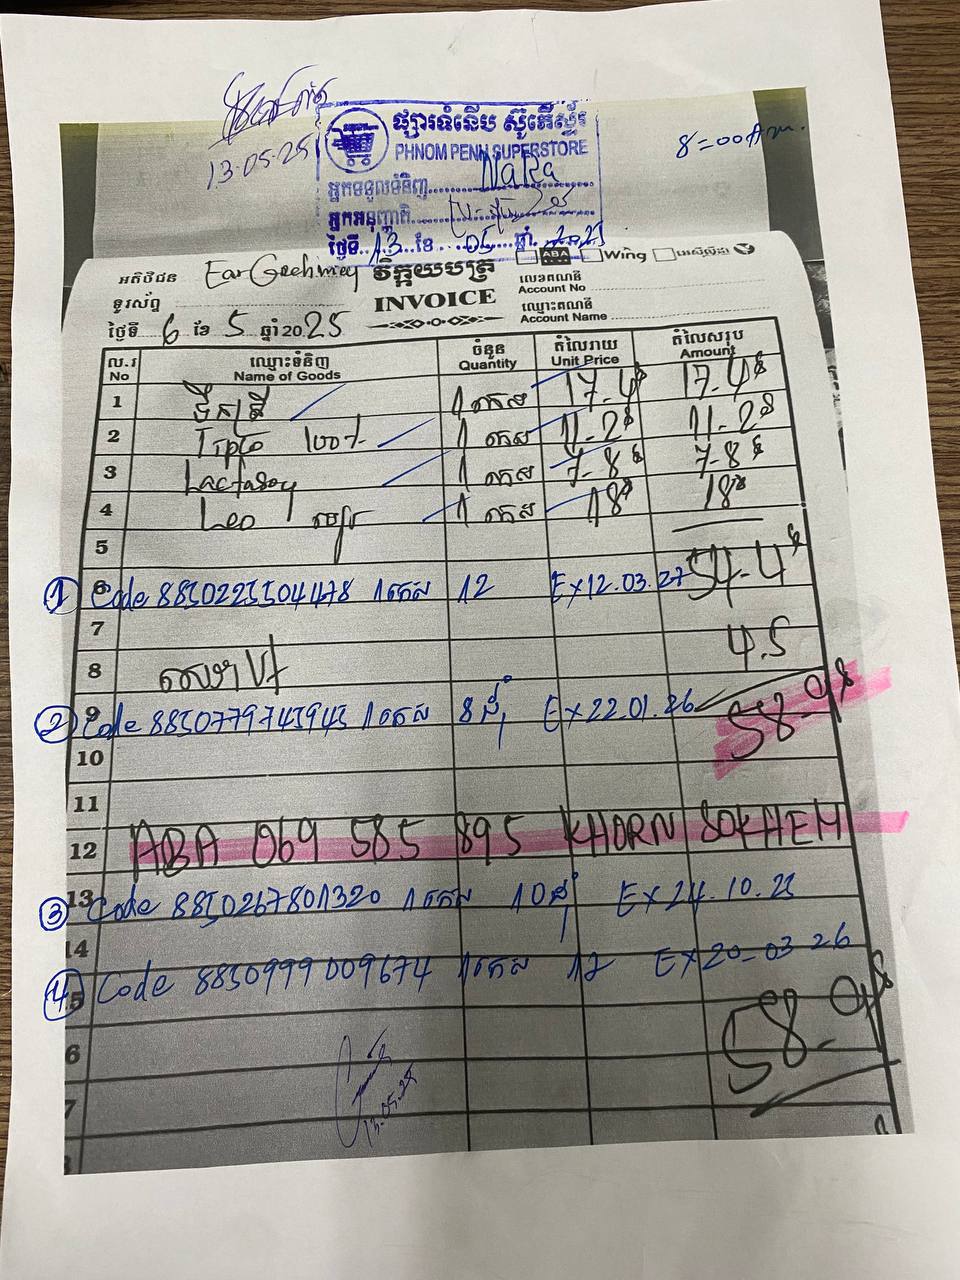 13-05-25
ផ្សារទំនើប ស៊ូភើស្ទ័រ
PHNOM PENN SUPERSTORE
8=00Am.
អ្នកទទួលទំនិញ........ Nara
អ្នកអនុញ្ញាតិ........
ថ្ងៃទី..13...ខែ...05...ឆ្នាំ..2025
អតិថិជន
វិក្កយបត្រ
ABA Wing
ទូរស័ព្ទ
INVOICE
លេខគណនី
Account No
ឈ្មោះគណនី
Account Name
ថ្ងៃទី 6 ខែ 5 ឆ្នាំ 2025
ល.រ ឈ្មោះទំនិញ ចំនួន តំលៃរាយ តំលៃសរុប
No Name of Goods Quantity Unit Price Amount
1 ទឹកត្រី 1 កេស 17-4$ 17-4$
2 Tipco 100% 1 កេស 11-2$ 11-2$
3 Lactasoy 1 កេស 7-8$ 7-8$
4 Leo 1 កេស 18$ 18$
5
54-4$
① 6 Code 1កេស 12 Ex12.03.27
7
4.5
8
② 9 Code 8850779743943 1កេស 8 Ex22.01.26
58-9$
10
11
12 ABA 069 585 895 KHORN SOKHEM
13
③ Code 8850267801320 1កេស 10 Ex24.10.25
14
④ 15 Code 8850999009674 1កេស 12 Ex20-03-26
58-9$
6
13.05.25
7